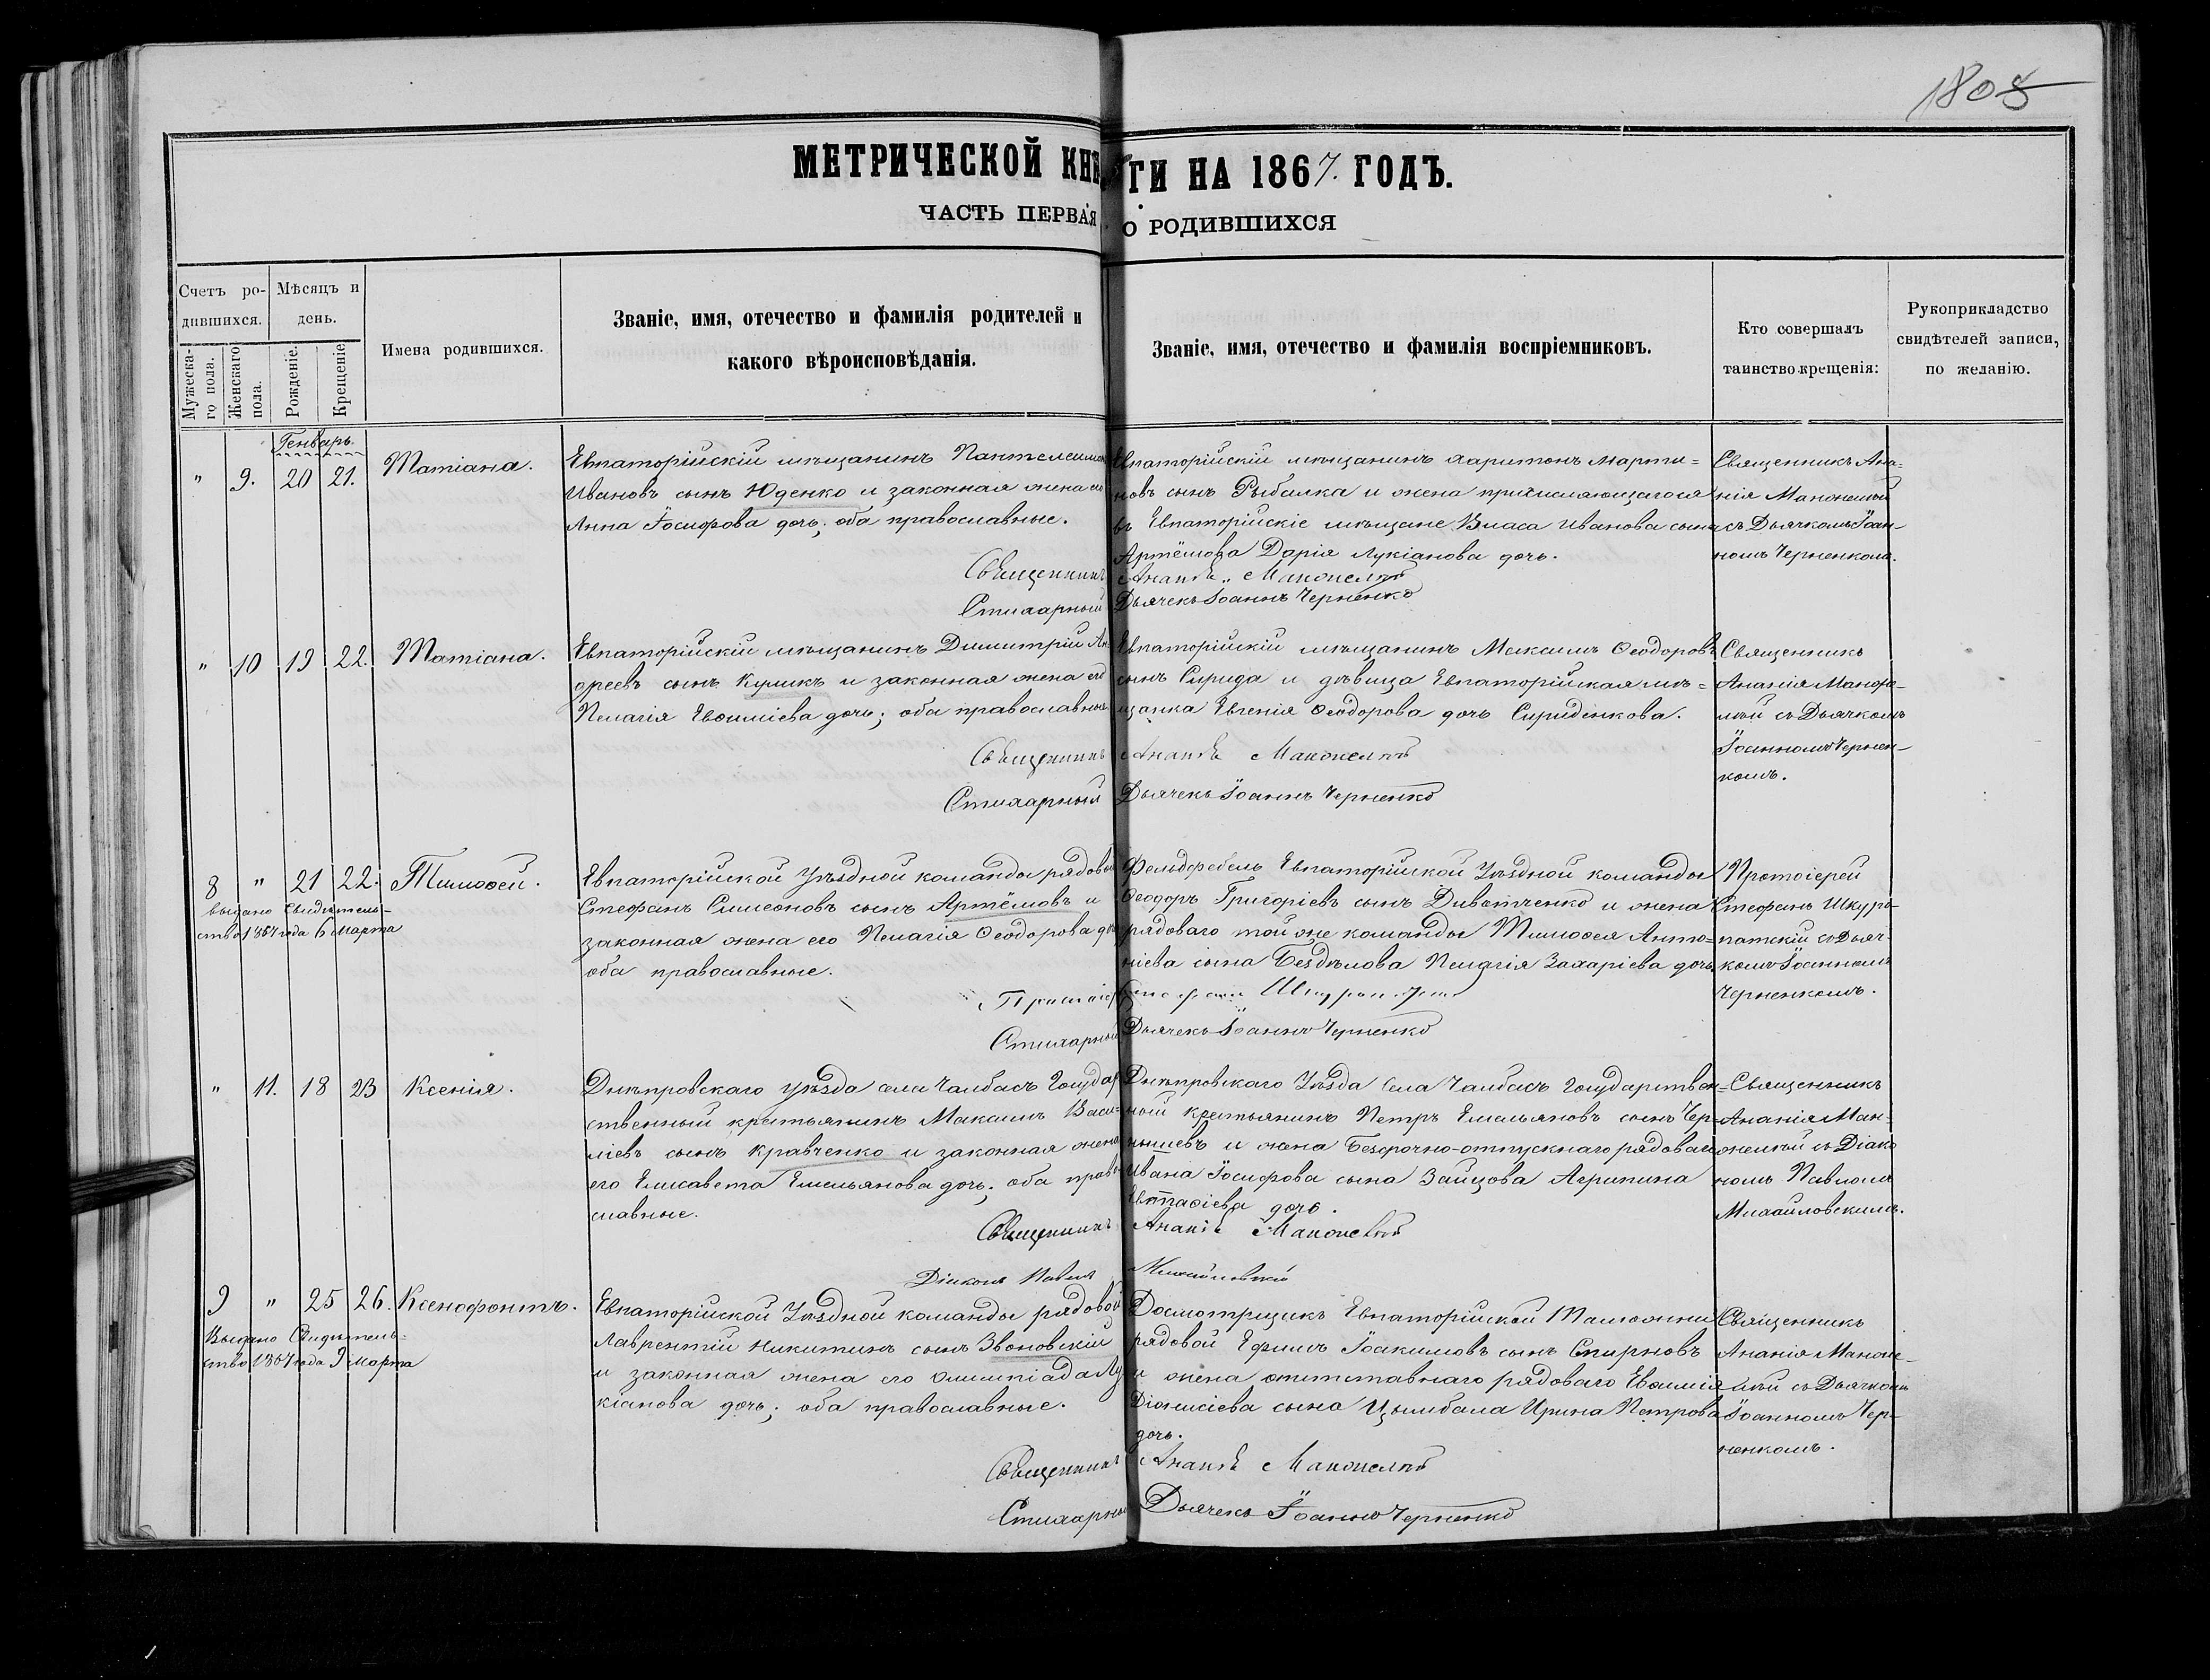 1808
МЕТРИЧЕСКОЙ КНИГИ НА 1867. ГОДЪ.
ЧАСТЬ ПЕРВАЯ О РОДИВШИХСЯ
Счетъ ро-
дившихся.
Мѣсяцъ и
день.
Мужеска-
го пола.
Женскаго
пола.
Рожденіе.
Крещеніе.
Имена родившихся.
Званіе, имя, отечество и фамилія родителей и
какого вѣроисповѣданія.
Званіе, имя, отечество и фамилія воспріемниковъ.
Кто совершалъ
таинство крещенія:
Рукоприкладство
свидѣтелей записи,
по желанію.
Генварь
" 9. 20 21. Татіана.
Евпаторійскій мѣщанинъ Пантелеимонъ
Ивановъ сынъ Юденко и законная жена его
Анна Іосифова дочь; оба православные.
Евпаторійскій мѣщанинъ Харитонъ Марти-
новъ сынъ Рыбалка и жена причисляющагося
въ Евпаторійскіе мѣщане Власа Иванова сына
Артёмова Дарія Лукіанова дочь.
Священникъ Ана-
нія
съ Дьячкомъ Іоан-
номъ Черненкомъ.
Священникъ Ананія
Стихарный Дьячекъ Іоаннъ Черненко
" 10 19 22. Татіана.
Евпаторійскій мѣщанинъ Димитрій Ан-
дреевъ сынъ Куликъ и законная жена его
Пелагія Евѳиміева дочь; оба православные
Евпаторійскій мѣщанинъ Максимъ Ѳеодоровъ
сынъ Спирида и дѣвица Евпаторійская мѣ-
щанка Евгенія Ѳеодорова дочь Спириденкова.
Священникъ
Ананія
съ Дьячкомъ
Іоанномъ Чернен-
комъ.
Священникъ Ананія
Стихарный Дьячекъ Іоаннъ Черненко
8 " 21 22. Тимоѳей.
Выдано Свидѣтель-
ство 1867 года 6 Марта
Евпаторійской Уѣздной команды рядовой
Стефанъ Симеоновъ сынъ Артёмовъ и
законная жена его Пелагія Ѳеодорова дочь
оба православные.
Фельдфебель Евпаторійской Уѣздной команды
Ѳеодоръ Григоріевъ сынъ и жена
рядоваго той же команды Тимоѳея Анто-
ніева сына Бездѣлова Пелагія Захаріева дочь
Протоіерей
Стефанъ Шкуро-
патскій съ Дьяч-
комъ Іоанномъ
Черненкомъ.
Протоіерей Стефанъ
Стихарный Дьячекъ Іоаннъ Черненко
" 11. 18 23 Ксенія.
Днѣпровскаго уѣзда села Чалбасъ Государ-
ственный крестьянинъ Максимъ Васи-
ліевъ сынъ Кравченко и законная жена
его Елисавета Емельянова дочь; оба право-
славные.
Днѣпровскаго Уѣзда села Чалбасъ Государствен-
ный крестьянинъ Петръ Емельяновъ сынъ Чер-
нышевъ и жена Безсрочно-отпускнаго рядоваго
Ивана Іосифова сына Зайцова Агрипина
дочь.
Священникъ
Ананія
съ Діако-
номъ Павломъ
Михайловскимъ.
Священникъ Ананія
Діаконъ Павелъ Михайловскій
9 " 25 26. Ксенофонтъ.
Выдано Свидѣтель-
ство 1867 года 9 Марта
Евпаторійской Уѣздной команды рядовой
Лаврентій Никитинъ сынъ Звоновскій
и законная жена его Олимпіада Лу-
кіанова дочь; оба православные.
Досмотрщикъ Евпаторійской Таможни
рядовой Ефимъ Іоакимовъ сынъ Смирновъ
и жена отставнаго рядоваго Евѳимія
Діонисіева сына Цымбала Ирина Петрова
дочь.
Священникъ
Ананія
съ Дьячкомъ
Іоанномъ Чер-
ненкомъ.
Священникъ Ананія
Стихарный Дьячекъ Іоаннъ Черненко